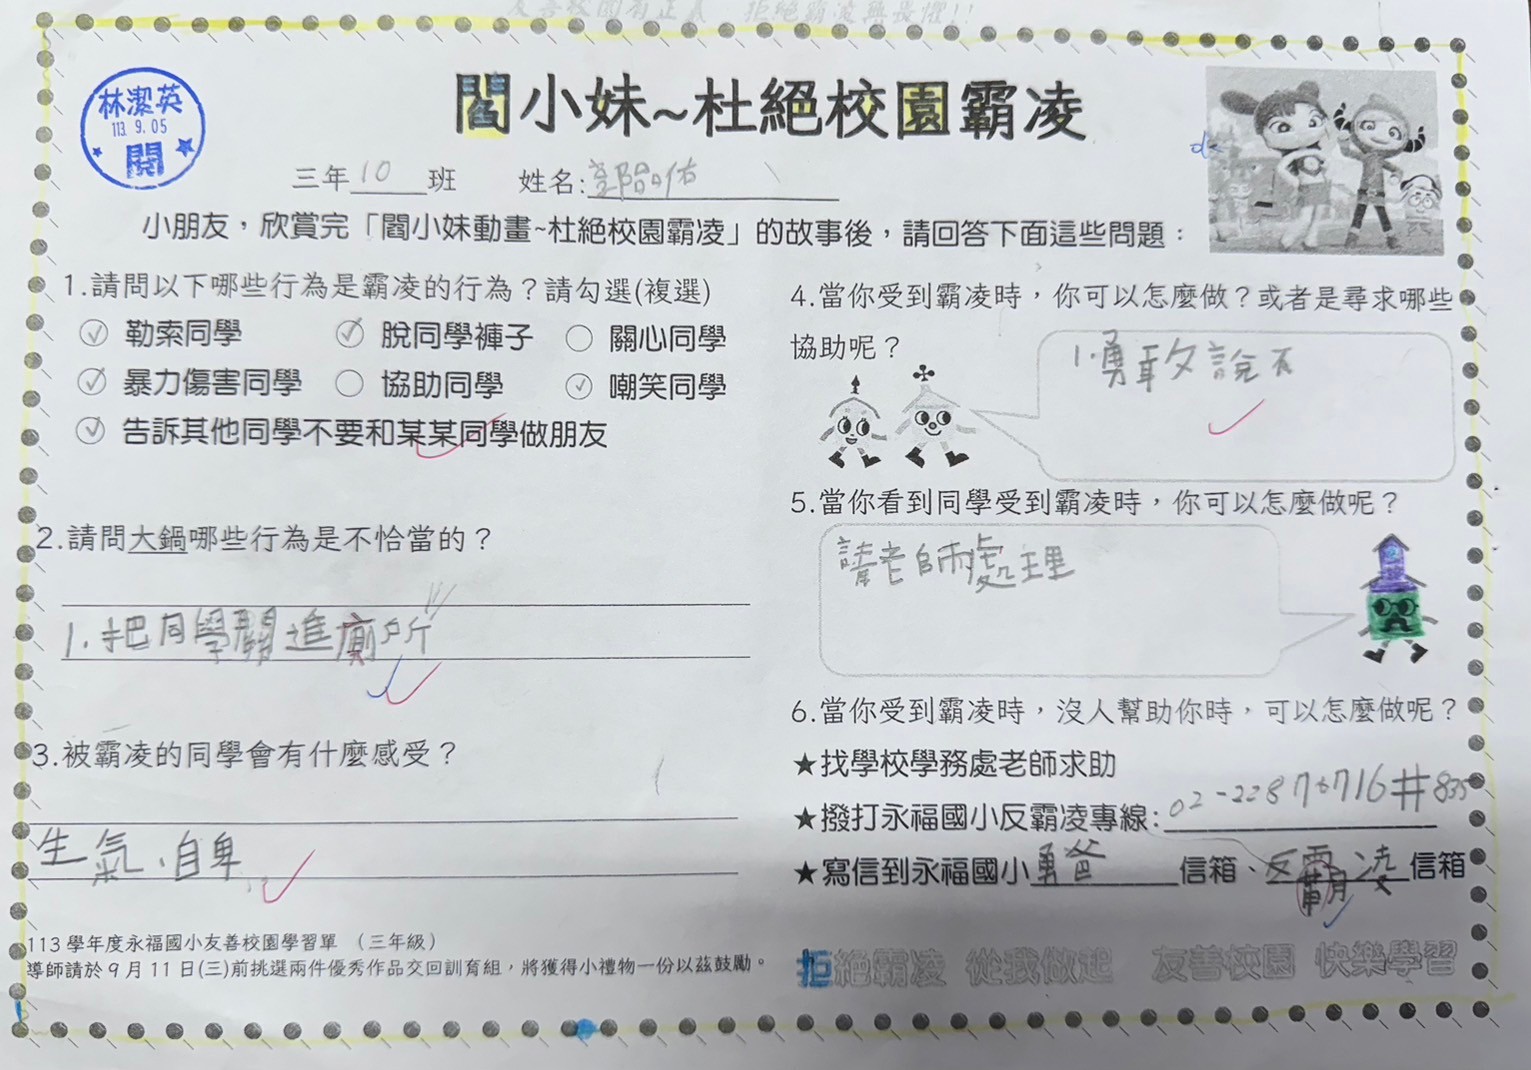 友善校園有正義 拒絕霸凌無畏懼!!
林潔英
113 9.05
閱
閻小妹~杜絕校園霸凌
三年10班 姓名:
小朋友，欣賞完「閻小妹動畫~杜絕校園霸凌」的故事後，請回答下面這些問題：
1.請問以下哪些行為是霸凌的行為？請勾選(複選)
✓ 勒索同學 ✓ 脫同學褲子 ○ 關心同學
✓ 暴力傷害同學 ○ 協助同學 ✓ 嘲笑同學
✓ 告訴其他同學不要和某某同學做朋友
2.請問大鍋哪些行為是不恰當的？
1.把同學關進廁所
3.被霸凌的同學會有什麼感受？
生氣、自卑
113學年度永福國小友善校園學習單 （三年級）
導師請於9月11日(三)前挑選兩件優秀作品交回訓育組，將獲得小禮物一份以茲鼓勵。
4.當你受到霸凌時，你可以怎麼做？或者是尋求哪些
協助呢？
1.勇敢說不
5.當你看到同學受到霸凌時，你可以怎麼做呢？
請老師處理
6.當你受到霸凌時，沒人幫助你時，可以怎麼做呢？
★找學校學務處老師求助
★撥打永福國小反霸凌專線:02-22876716#835
★寫信到永福國小勇爸信箱、反霸凌信箱
霸
拒絕霸凌 從我做起 友善校園 快樂學習